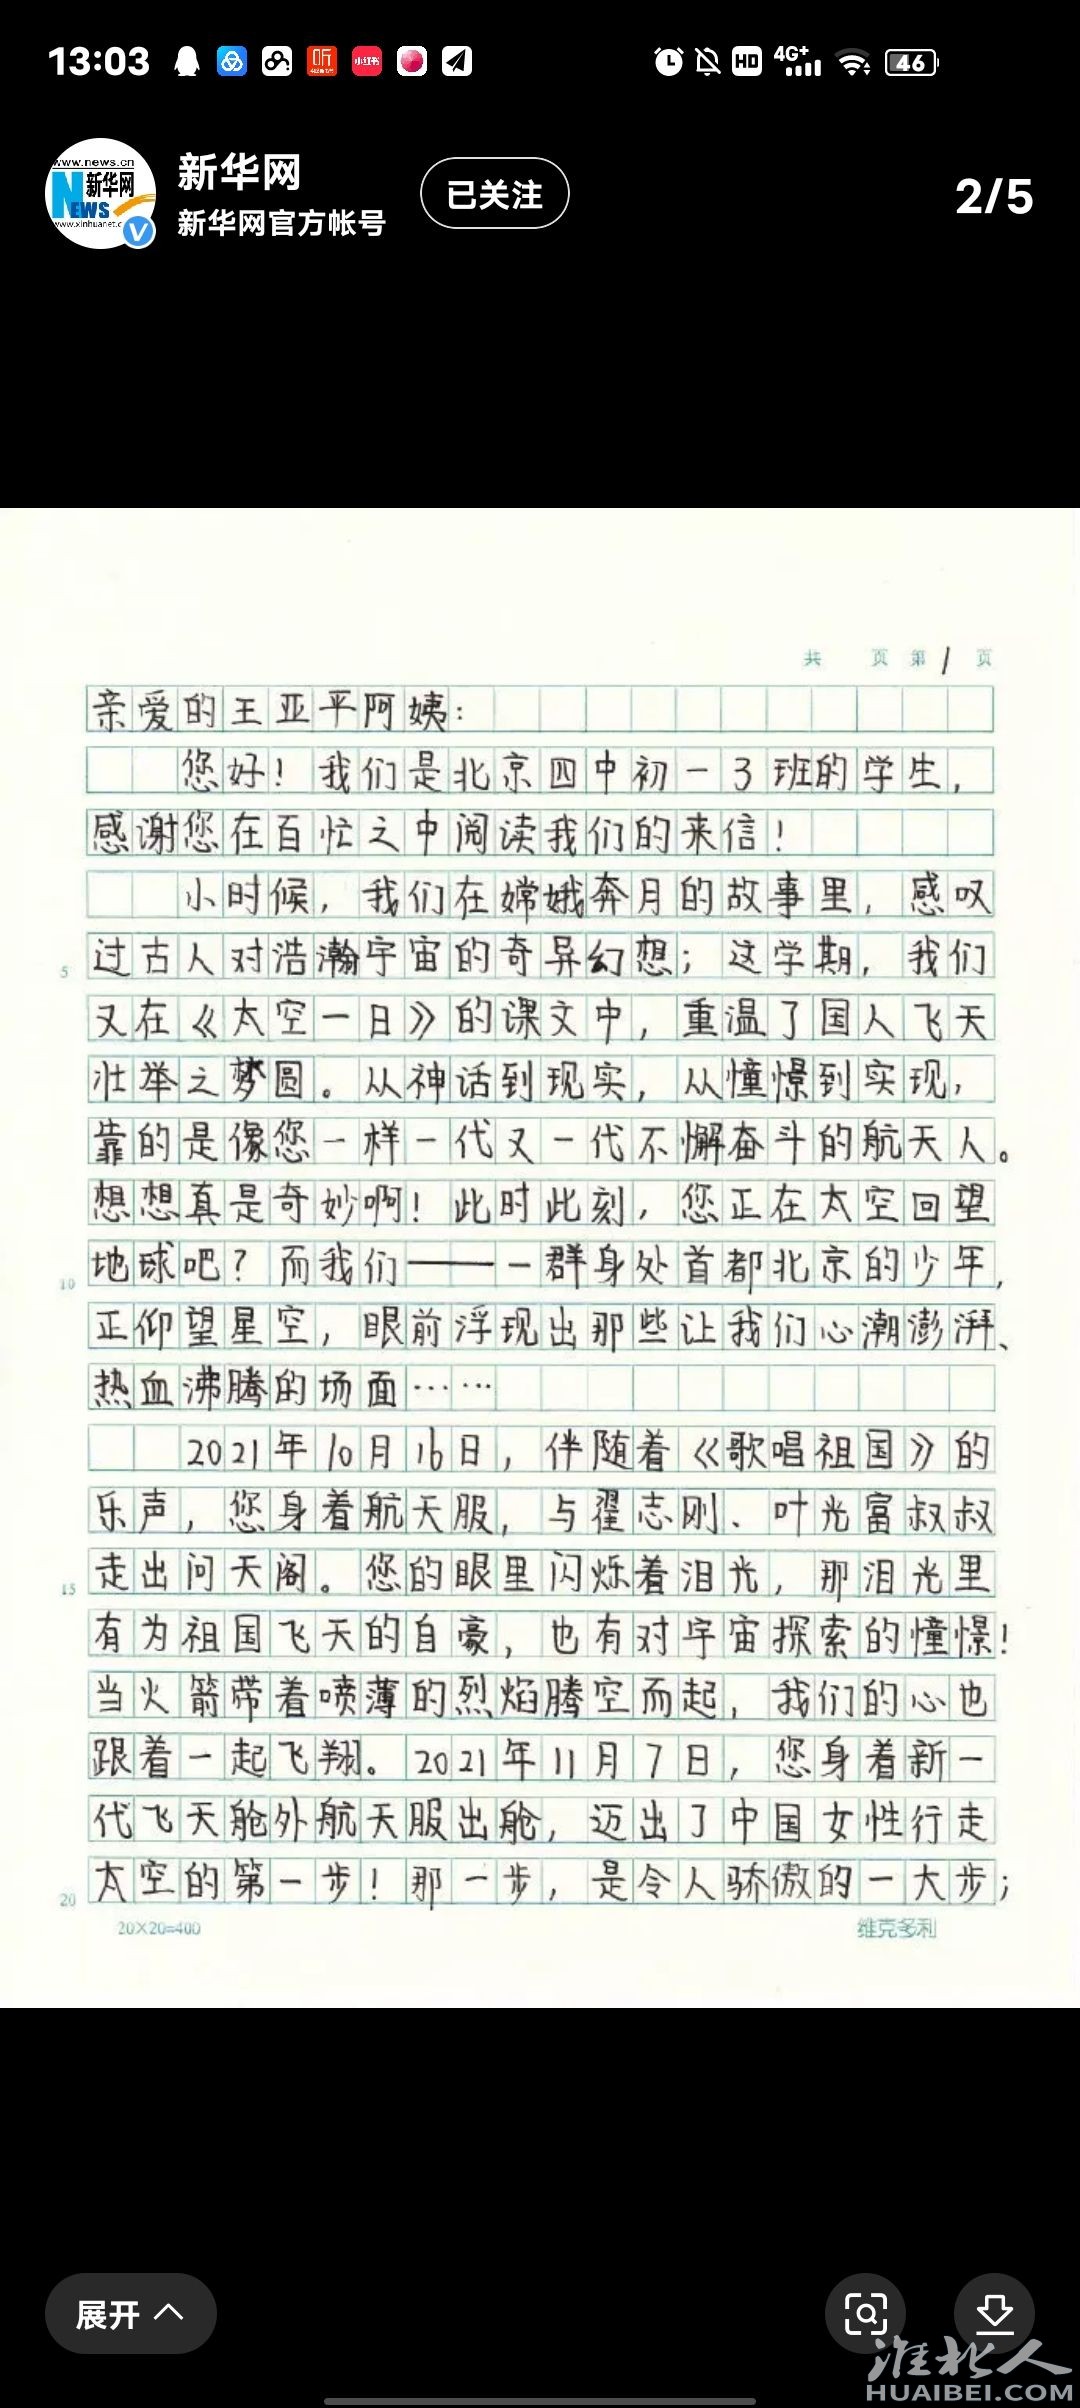 13:03
听
小红书
HD
4G+
46
www.news.cn
新华网
NEWS
www.xinhuanet.c
V
新华网
新华网官方帐号
已关注
2/5
共 页 第 1 页
亲爱的王亚平阿姨：
您好！我们是北京四中初一3班的学生，
感谢您在百忙之中阅读我们的来信！
小时候，我们在嫦娥奔月的故事里，感叹
5 过古人对浩瀚宇宙的奇异幻想；这学期，我们
又在《太空一日》的课文中，重温了国人飞天
壮举之梦圆。从神话到现实，从憧憬到实现，
靠的是像您一样一代又一代不懈奋斗的航天人。
想想真是奇妙啊！此时此刻，您正在太空回望
10 地球吧？而我们——一群身处首都北京的少年，
正仰望星空，眼前浮现出那些让我们心潮澎湃、
热血沸腾的场面……
2021年10月16日，伴随着《歌唱祖国》的
乐声，您身着航天服，与翟志刚、叶光富叔叔
15 走出问天阁。您的眼里闪烁着泪光，那泪光里
有为祖国飞天的自豪，也有对宇宙探索的憧憬！
当火箭带着喷薄的烈焰腾空而起，我们的心也
跟着一起飞翔。2021年11月7日，您身着新一
代飞天舱外航天服出舱，迈出了中国女性行走
20 太空的第一步！那一步，是令人骄傲的一大步；
20×20=400
维克多利
展开
淮北人
HUAIBEI.COM